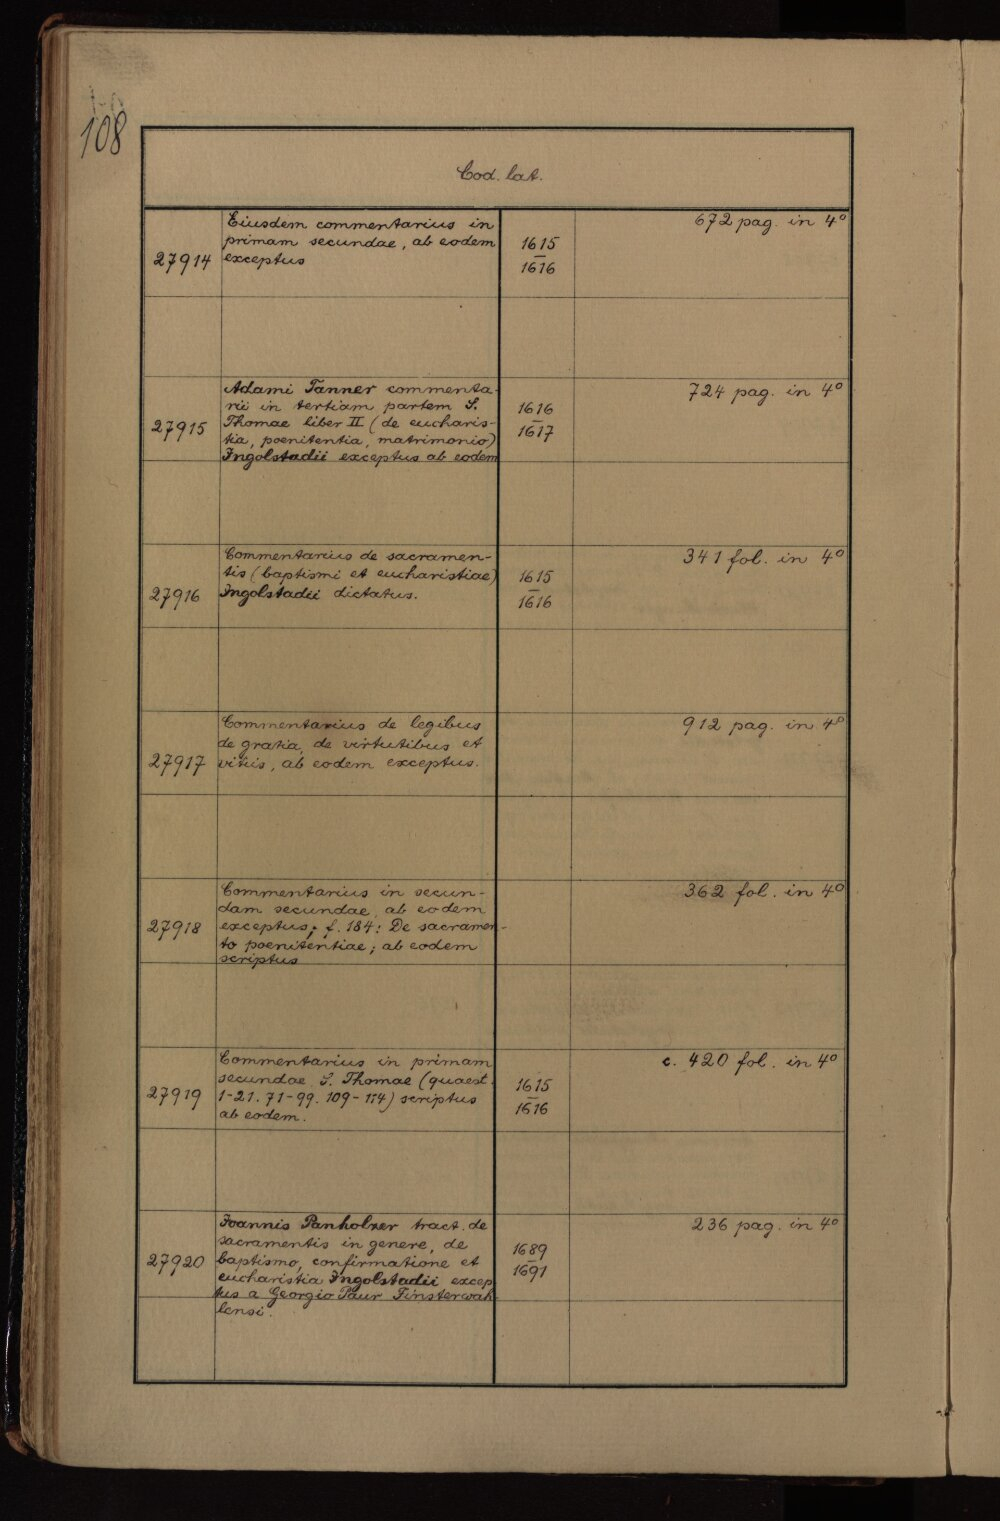 108
Cod. lat.
27914
Eiusdem commentarius in
primam secundae, ab eodem
exceptus
1615
–
1616
672 pag. in 4º
27915
Adami Tanner commenta-
rii in tertiam partem S.
Thomae liber II (de eucharis-
tia, poenitentia, matrimonio)
Ingolstadii exceptus ab eodem
1616
–
1617
724 pag. in 4º
27916
Commentarius de sacramen-
tis (baptismi et eucharistiae)
Ingolstadii dictatus.
1615
–
1616
341 fol. in 4º
27917
Commentarius de legibus
de gratia, de virtutibus et
vitiis, ab eodem exceptus.
912 pag. in 4º
27918
Commentarius in secun-
dam secundae, ab eodem
exceptus; f. 184: De sacramen-
to poenitentiae; ab eodem
scriptus
362 fol. in 4º
27919
Commentarius in primam
secundae S. Thomae (quaest.
1-21. 71-99. 109-114) scriptus
ab eodem.
1615
–
1616
c. 420 fol. in 4º
27920
Joannis Panholzer tract. de
sacramentis in genere, de
baptismo, confirmatione et
eucharistia Ingolstadii excep
tus a Georgio Paur Finsterwah
lensi.
1689
–
1691
236 pag. in 4º